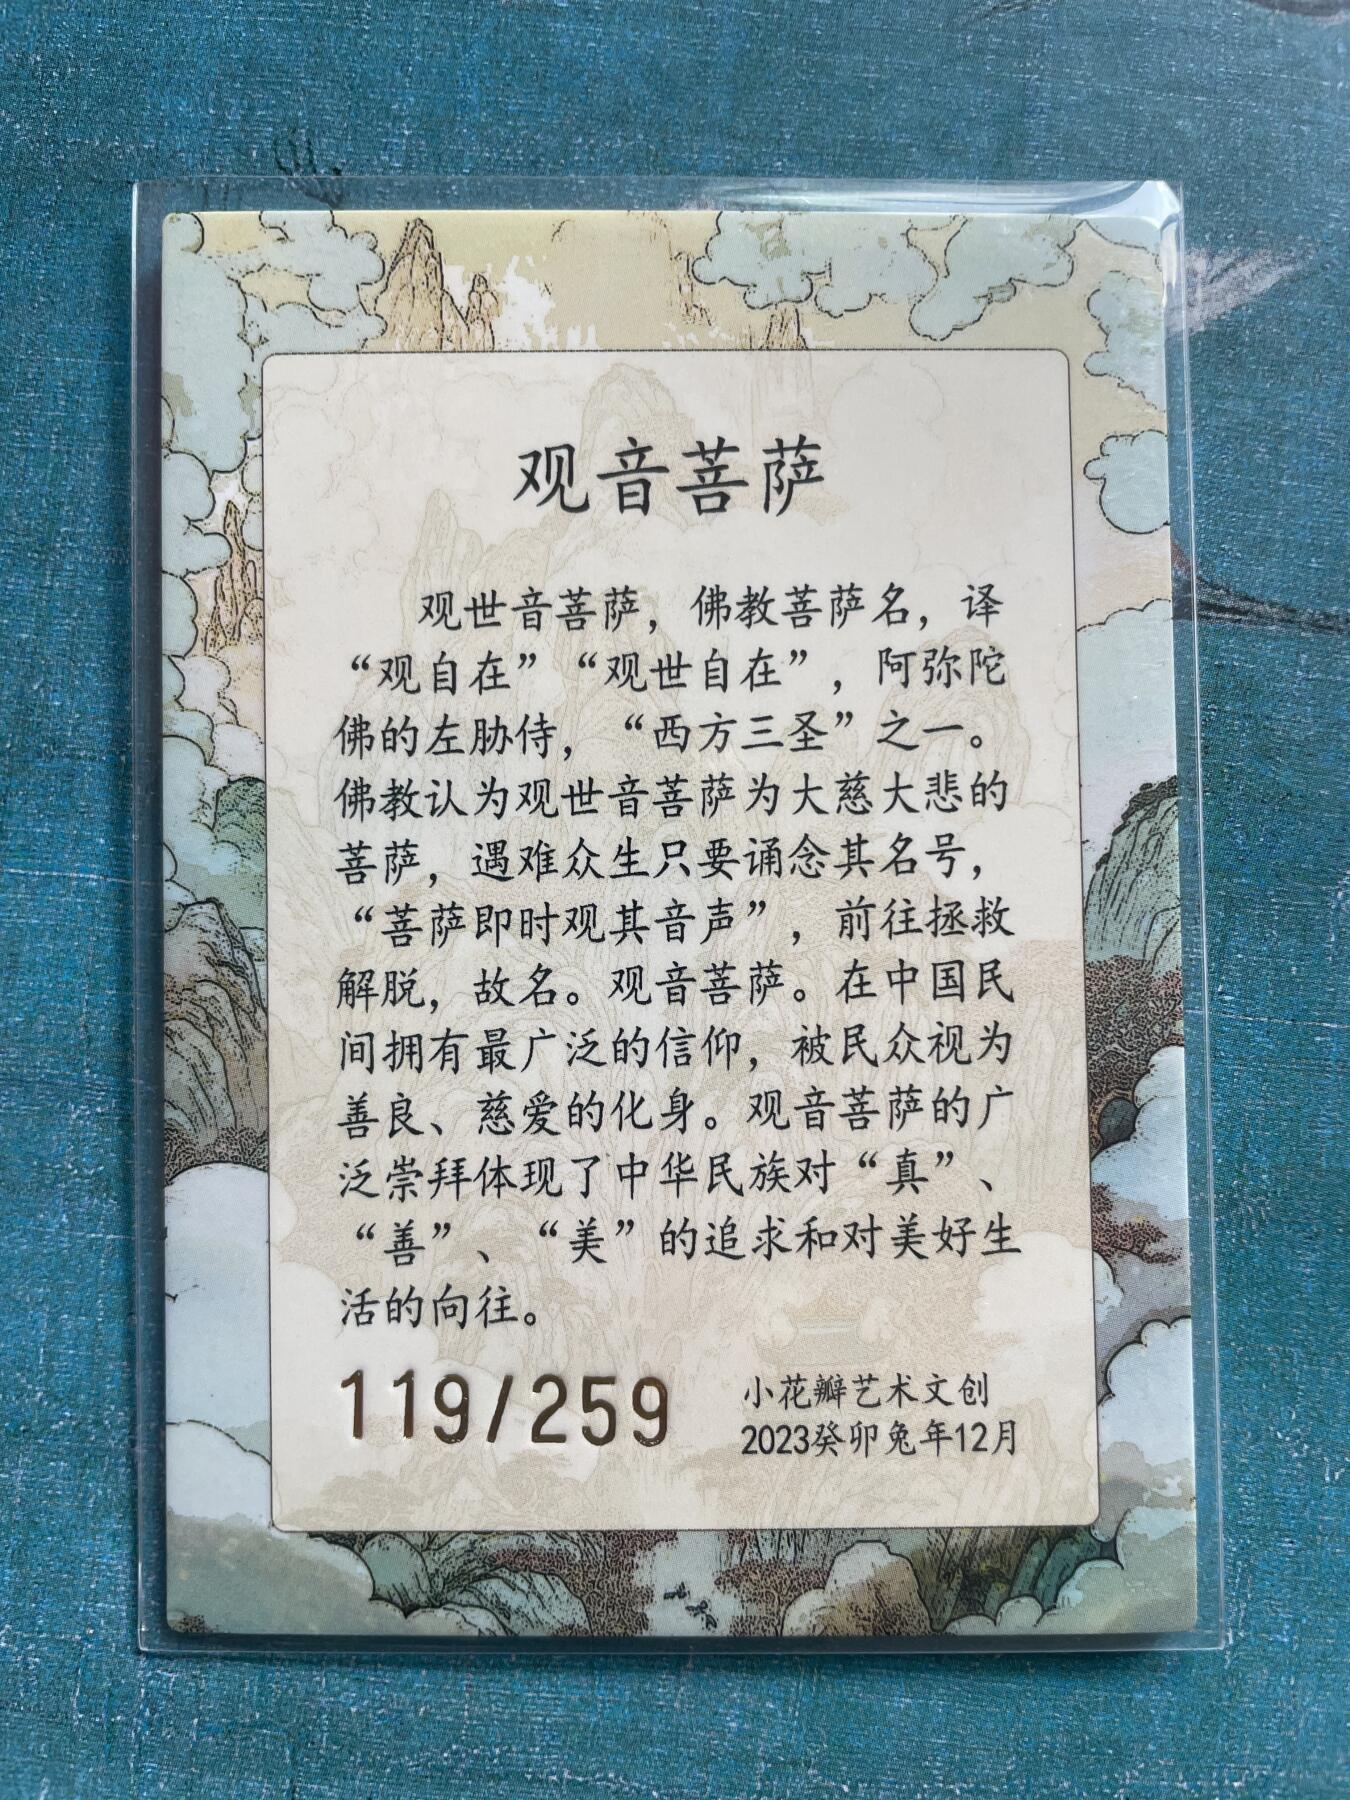 观音菩萨
观世音菩萨，佛教菩萨名，译
“观自在”“观世自在”，阿弥陀
佛的左胁侍，“西方三圣”之一。
佛教认为观世音菩萨为大慈大悲的
菩萨，遇难众生只要诵念其名号，
“菩萨即时观其音声”，前往拯救
解脱，故名。观音菩萨。在中国民
间拥有最广泛的信仰，被民众视为
善良、慈爱的化身。观音菩萨的广
泛崇拜体现了中华民族对“真”、
“善”、“美”的追求和对美好生
活的向往。
119/259
小花瓣艺术文创
2023癸卯兔年12月